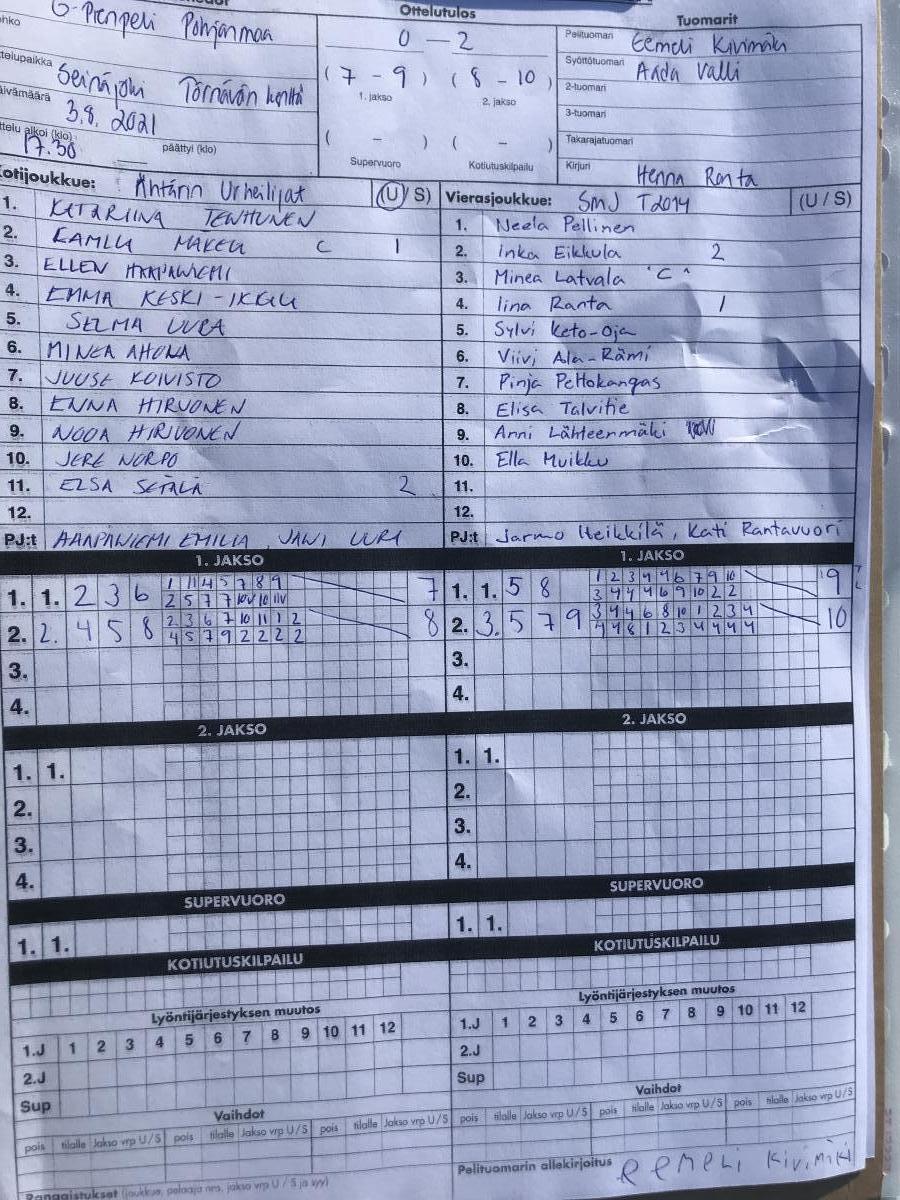 G-Pienpeli Pohjanmaa
Seinäjoki Törnävän kenttä
3.8. 2021
17.30
päättyi (klo)
Ottelutulos
0 - 2
( 7 - 9 ) ( 8 - 10 )
1. jakso 2. jakso
( - ) ( - )
Supervuoro Kotiutuskilpailu
Tuomarit
Pelituomari Eemeli Kivimäki
Syöttötuomari Aada Valli
2-tuomari
3-tuomari
Takarajatuomari
Kirjuri Henna Ranta
Kotijoukkue: Ähtärin Urheilijat (U / S)
1. KATARIINA TENHUNEN
2. C 1
3. ELLEN HAAPANIEMI
4. EMMA KESKI-IKKALA
5. SELMA UURA
6. MINEA AHOLA
7. JUUSE KOIVISTO
8. ENNA HIRVONEN
9. NOOA HIRVONEN
10. JERE NORPO
11. ELSA SETÄLÄ 2
12.
PJ:t HAAPANIEMI EMILIA, JANI UURA
Vierasjoukkue: SMJ T2014 (U / S)
1. Neela Pellinen
2. Inka Eikkula 2
3. Minea Latvala "C"
4. Iina Ranta 1
5. Sylvi Keto-Oja
6. Viivi Ala-Rämi
7. Pinja Peltokangas
8. Elisa Talvitie
9. Anni Lähteenmäki
10. Ella Muikku
11.
12.
PJ:t Jarmo Heikkilä, Kati Rantavuori
1. JAKSO
1. 1. 2 3 6 7
2. 2. 4 5 8 2 3 6 7 10 11 1 2 8
4 5 7 9 2 2 2 2
3.
4.
2. JAKSO
1. 1.
2.
3.
4.
SUPERVUORO
1. 1.
KOTIUTUSKILPAILU
Lyöntijärjestyksen muutos
1.J 1 2 3 4 5 6 7 8 9 10 11 12
2.J
Sup
Vaihdot
pois tilalle Jakso vrp U / S pois tilalle Jakso vrp U / S pois tilalle Jakso vrp U / S
Rangaistukset (joukkue, pelaaja nro, jakso vrp U / S ja syy)
1. JAKSO
1. 1. 5 8 1 2 3 4 4 6 7 9 10 9
3 4 4 4 6 9 10 2 2
2. 3. 5 7 9 3 4 4 6 8 10 1 2 3 4 10
4 4 8 1 2 3 4 4 4 4
3.
4.
2. JAKSO
1. 1.
2.
3.
4.
SUPERVUORO
1. 1.
KOTIUTUSKILPAILU
Lyöntijärjestyksen muutos
1.J 1 2 3 4 5 6 7 8 9 10 11 12
2.J
Sup
Vaihdot
pois tilalle Jakso vrp U / S pois tilalle Jakso vrp U / S pois tilalle Jakso vrp U / S
Pelituomarin allekirjoitus eemeli kivimäki